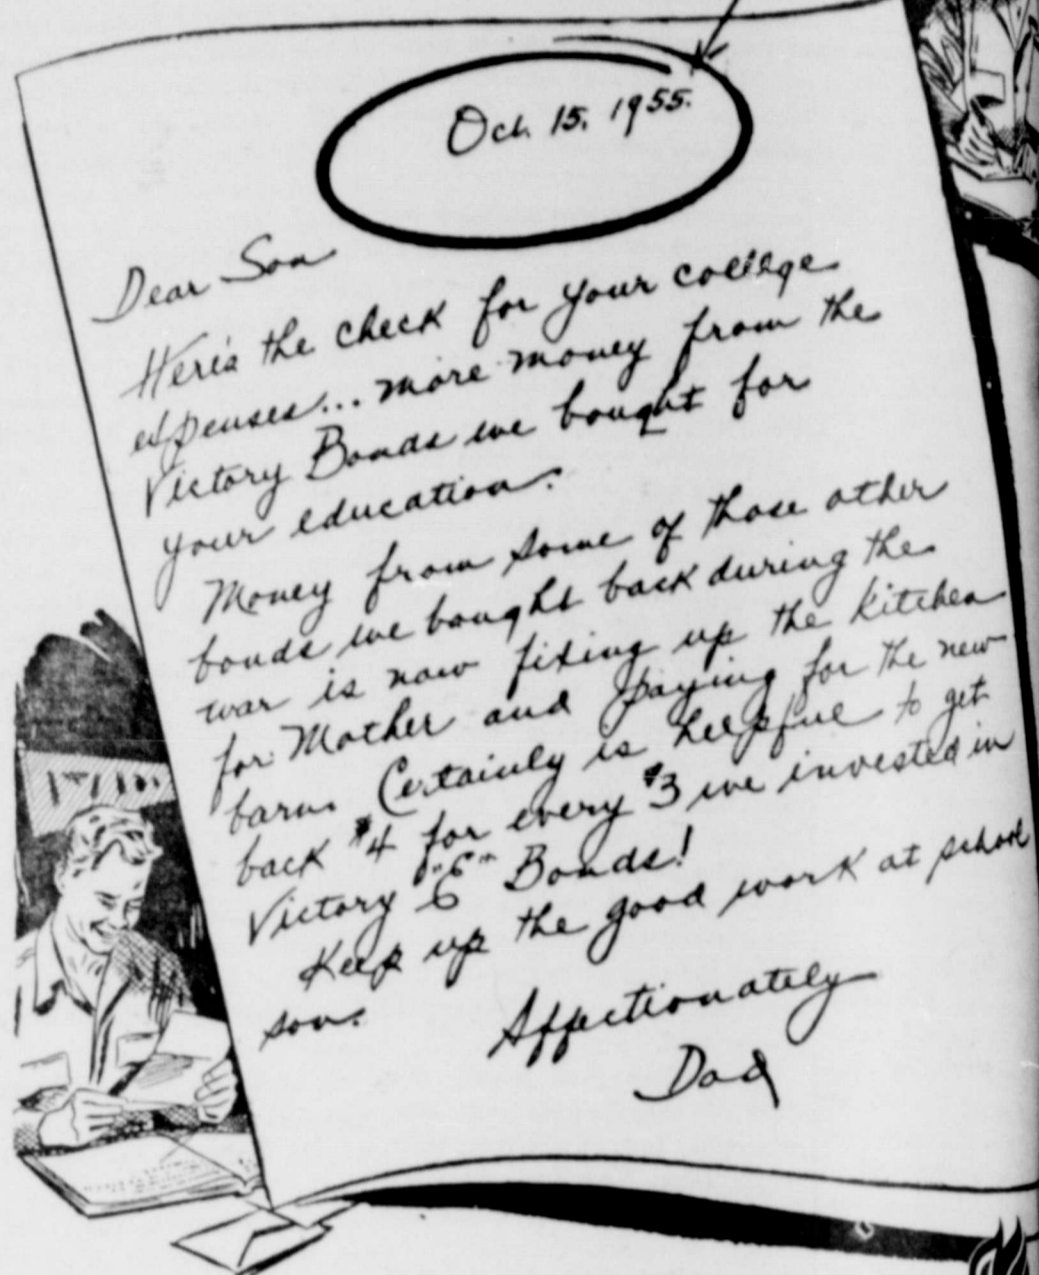 Oct. 15, 1955.
Dear Son
Here's the check for your college
expenses... more money from the
Victory Bonds we bought for
your education.
Money from some of those other
bonds we bought back during the
war is now fixing up the kitchen
for Mother and paying for the new
barn. Certainly is helpful to get
back $4 for every $3 we invested in
Victory "E" Bonds!
Keep up the good work at school
son.
Affectionately
Dad